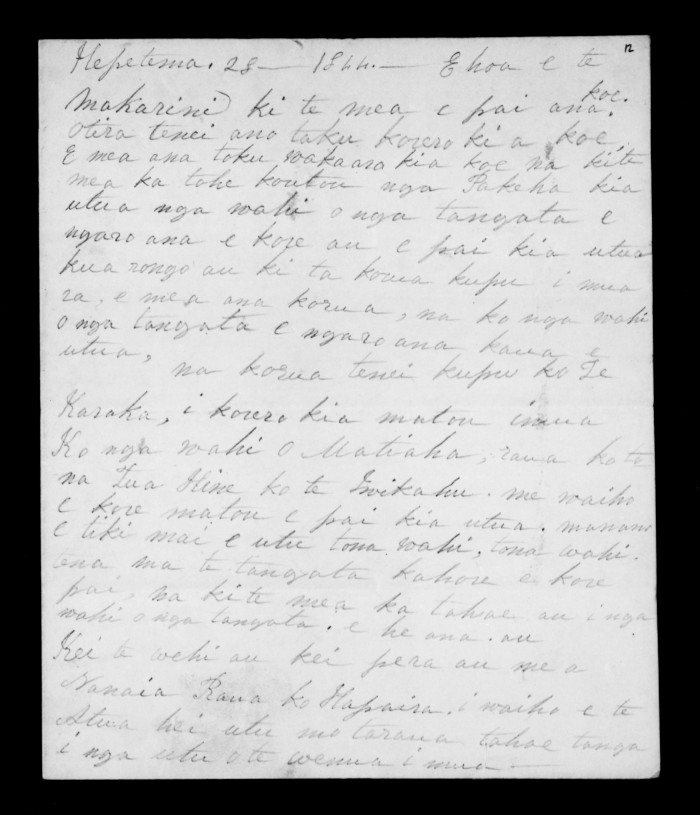 12
Hepetema. 28 — 1844. — E hoa e te
Makarini) ki te mea e pai ana koe.
Otira tenei ano taku korero ki a koe,
E mea ana toku wakaaro kia koe na ki te
mea ka tohe koutou nga Pakeha kia
utua nga wahi o nga tangata e
ngaro ana e kore au e pai kia utua
kua rongo au ki ta korua kupu i mua
ra, e mea ana korua, na ko nga wahi
o nga tangata e ngaro ana kaua e
utua, na korua tenei kupu ko Te
Karaka, i korero kia matou imua
Ko nga wahi o Matiaha, raua ko ta
na Tua Hine ko te Iwikahu. me waiho
e kore matou e pai kia utua. mana
e tiki mai e utu tona wahi, tona wahi.
tena ma te tangata kahore e kore
pai, na ki te mea ka tahae au i nga
wahi o nga tangata. e he ana. au
Kei te wehi au kei pera au me a
Nanaia Raua ko Hapaira. i waiho e te
Atua hei utu mo taraua tahae tanga
i nga utu o te wenua i mua —